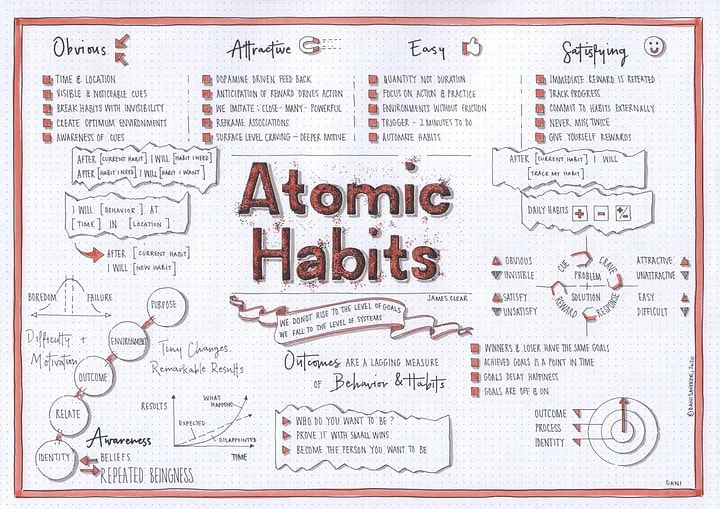 Obvious
TIME & LOCATION
VISIBLE & NOTICEABLE CUES
BREAK HABITS WITH INVISIBILITY
CREATE OPTIMUM ENVIRONMENTS
AWARENESS OF CUES
Attractive
DOPAMINE DRIVEN FEED BACK
ANTICIPATION OF REWARD DRIVES ACTION
WE IMITATE : CLOSE - MANY - POWERFUL
REFRAME ASSOCIATIONS
SURFACE LEVEL CRAVING — DEEPER MOTIVE
Easy
QUANTITY NOT DURATION
FOCUS ON ACTION & PRACTICE
ENVIRONMENTS WITHOUT FRICTION
TRIGGER - 2 MINUTES TO DO
AUTOMATE HABITS
Satisfying
IMMEDIATE REWARD IS REPEATED
TRACK PROGRESS
COMMIT TO HABITS EXTERNALLY
NEVER MISS TWICE
GIVE YOURSELF REWARDS
AFTER [CURRENT HABIT] I WILL [HABIT I NEED]
AFTER [HABIT I NEED] I WILL [HABIT I WANT]
I WILL [BEHAVIOR] AT
[TIME] IN [LOCATION]
AFTER [CURRENT HABIT]
I WILL [NEW HABIT]
Atomic
Habits
JAMES CLEAR
WE DO NOT RISE TO THE LEVEL OF GOALS
WE FALL TO THE LEVEL OF SYSTEMS
AFTER [CURRENT HABIT] I WILL
[TRACK MY HABIT]
DAILY HABITS + - +/-
OBVIOUS
INVISIBLE
SATISFY
UNSATISFY
CUE
CRAVE
PROBLEM
SOLUTION
REWARD
RESPONSE
ATTRACTIVE
UNATTRACTIVE
EASY
DIFFICULT
BOREDOM
FAILURE
Difficulty +
Motivation
PURPOSE
ENVIRONMENT
OUTCOME
RELATE
IDENTITY
Tiny Changes,
Remarkable Results
RESULTS
WHAT HAPPENS
EXPECTED
DISAPPOINTED
TIME
Awareness
BELIEFS
REPEATED BEINGNESS
Outcomes ARE A LAGGING MEASURE
OF Behavior & Habits
WHO DO YOU WANT TO BE ?
PROVE IT WITH SMALL WINS
BECOME THE PERSON YOU WANT TO BE
WINNERS & LOSER HAVE THE SAME GOALS
ACHIEVED GOALS IS A POINT IN TIME
GOALS DELAY HAPPINESS
GOALS ARE OFF & ON
OUTCOME
PROCESS
IDENTITY
DANI